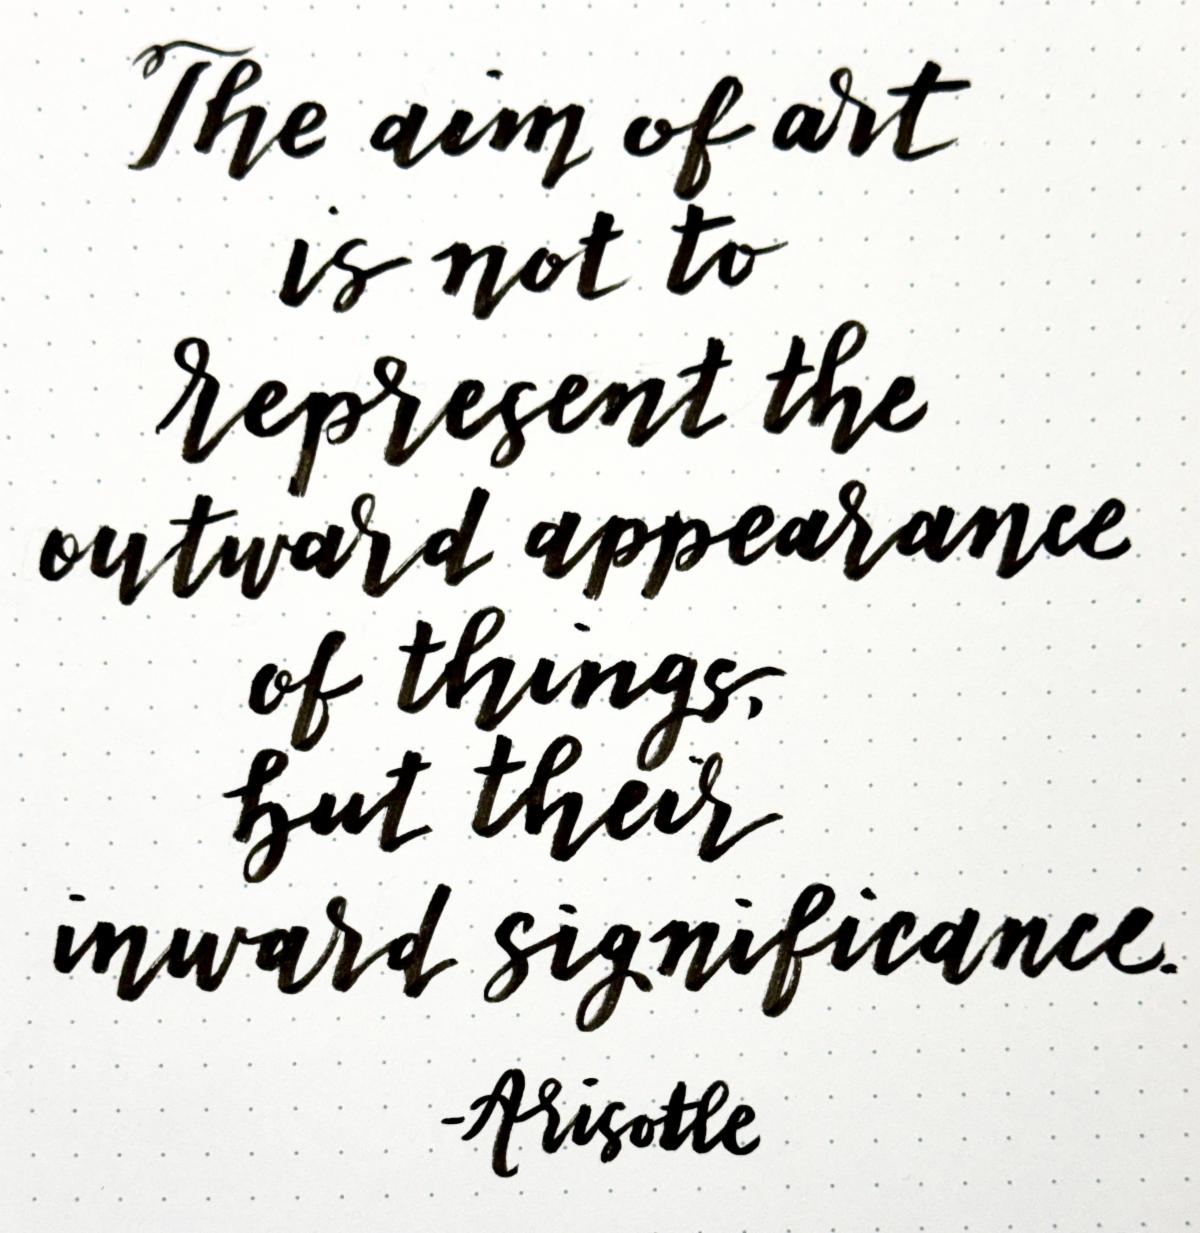 The aim of art
is not to
represent the
outward appearance
of things,
but their
inward significance.
-Arisotle